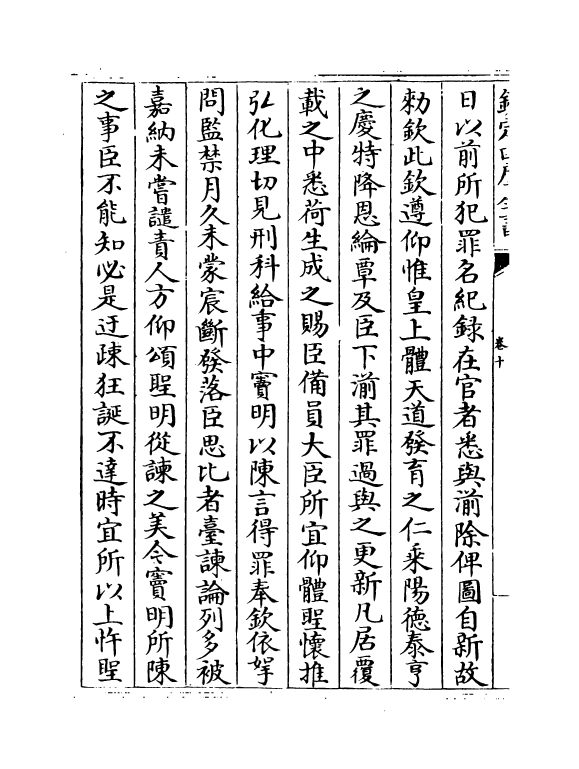 欽定四庫全書
卷十
日以前所犯罪名紀録在官者悉與湔除俾圖自新故
勅欽此欽遵仰惟皇上體天道發育之仁乗陽德泰亨
之慶特降恩綸覃及臣下湔其罪過與之更新凡居覆
載之中悉荷生成之賜臣備員大臣所宜仰體聖懷推
弘化理切見刑科給事中竇明以陳言得罪奉欽依拏
問監禁月久未蒙宸斷發落臣思比者臺諫論列多被
嘉納未嘗譴責人方仰頌聖明從諫之美今竇明所陳
之事臣不能知必是迂疎狂誕不達時宜所以上忤聖